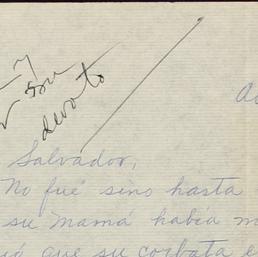 y
su
devoto
Salvador,
No fué sino hasta
su mamá había m
ió que su corbata e